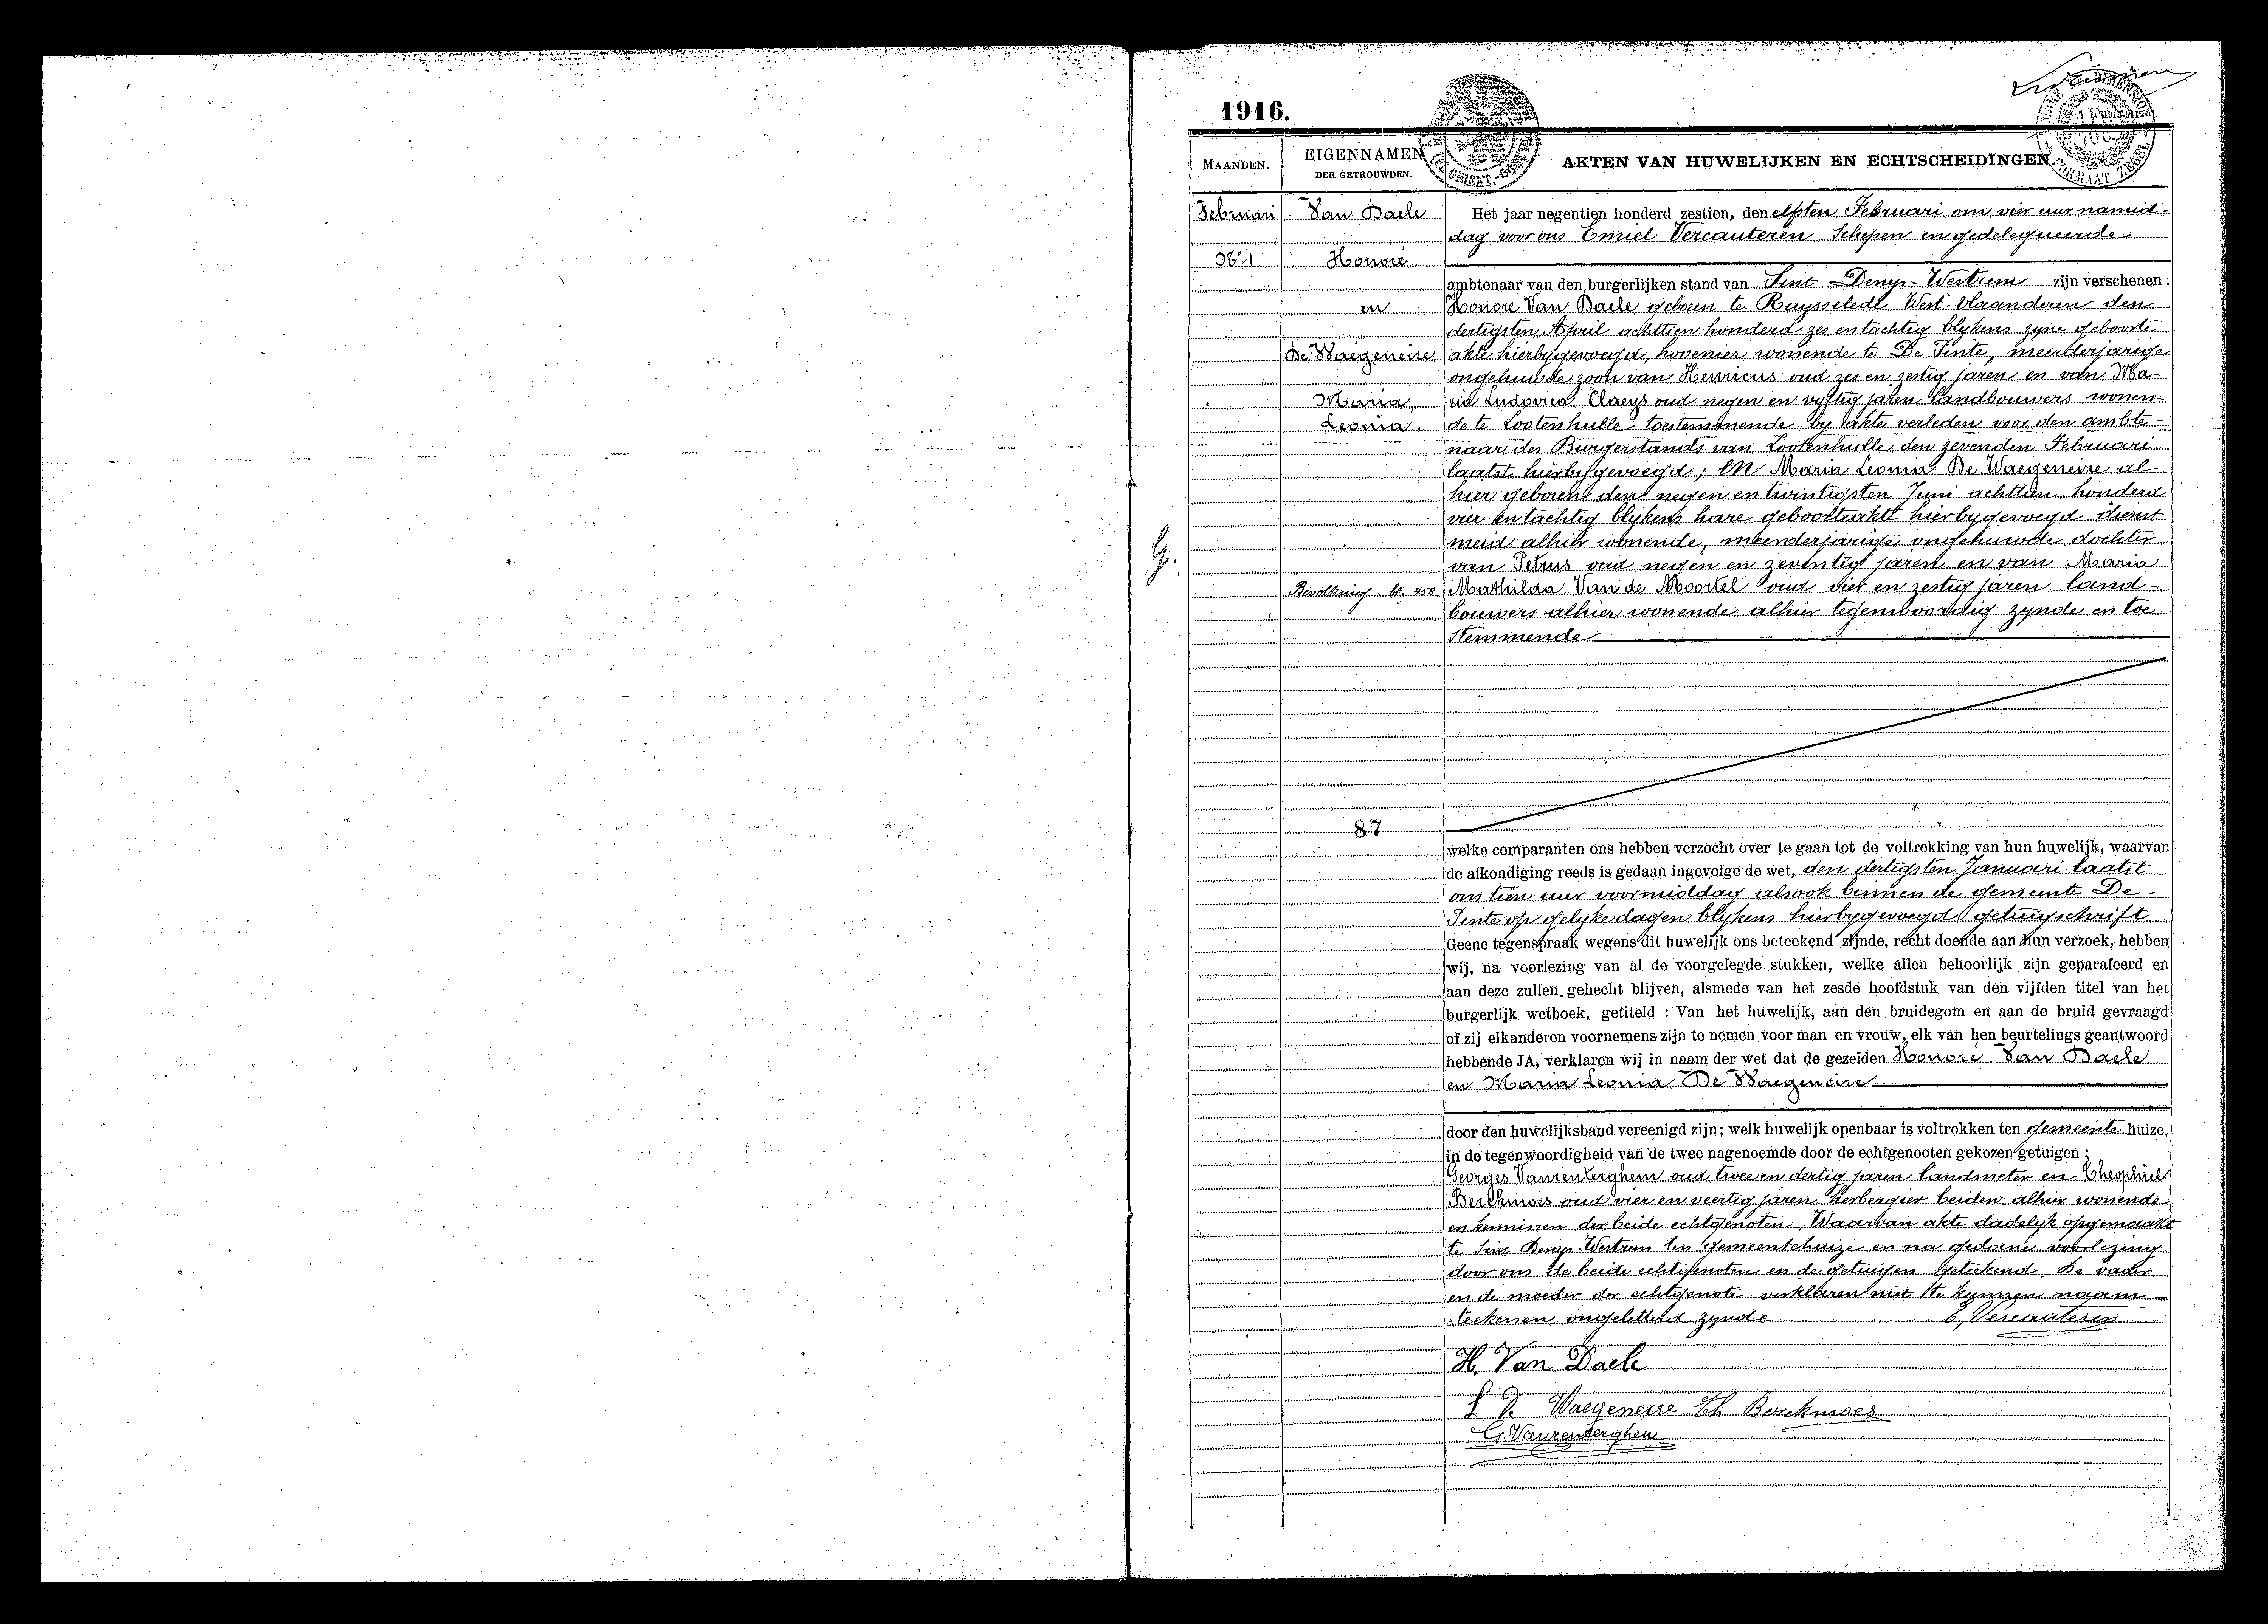 1916.
MAANDEN.
EIGENNAMEN
DER GETROUWDEN.
AKTEN VAN HUWELIJKEN EN ECHTSCHEIDINGEN
FORMAAT ZEGEL
Februari
Nº 1
Van Daele
Honoré
en
De Waegeneire
Maria,
Leonia.
Bevolking bl. 458
87
G.
Het jaar negentien honderd zestien, den elfsten Februari om vier uur namid-
dag voor ons Emiel Vercauteren Schepen en gedelegueerde
ambtenaar van den burgerlijken stand van Sint-Denys-Westrem zijn verschenen :
Honore Van Daele geboren te Ruysselede West-Vlaanderen den
dertigsten April achttien honderd zes en tachtig blykens zyne geboorte
akte hierbygevoegd, hovenier wonende te De Pinte, meerderjarige
ongehuwde zoon van Henricus oud zes en zestig jaren en van Ma-
ria Ludovica Claeys oud negen en vyftig jaren landbouwers wonen-
de te Lootenhulle toestemmende by akte verleden voor den ambte-
naar des Burgerstands van Lootenhulle den zevenden Februari
laatst hierbygevoegd ; en Maria Leonia De Waegeneire al-
hier geboren den negen en twintigsten Juni achttien honderd
vier en tachtig blykens hare geboorteakte hierbygevoegd dienst
meid alhier wonende, meerderjarige ongehuwde dochter
van Petrus oud negen en zeventig jaren en van Maria
Mathilda Van de Moortel oud vier en zestig jaren land-
bouwers alhier wonende alhier tegenwoordig zynde en toe
stemmende
welke comparanten ons hebben verzocht over te gaan tot de voltrekking van hun huwelijk, waarvan
de afkondiging reeds is gedaan ingevolge de wet, den dertigsten Januari laatst
om tien uur voormiddag alsook binnen de gemeente De-
Pinte op gelyke dagen blykens hierbygevoegd getuigschrift
Geene tegenspraak wegens dit huwelijk ons beteekend zijnde, recht doende aan hun verzoek, hebben
wij, na voorlezing van al de voorgelegde stukken, welke allen behoorlijk zijn geparafeerd en
aan deze zullen gehecht blijven, alsmede van het zesde hoofdstuk van den vijfden titel van het
burgerlijk wetboek, getiteld : Van het huwelijk, aan den bruidegom en aan de bruid gevraagd
of zij elkanderen voornemens zijn te nemen voor man en vrouw, elk van hen beurtelings geantwoord
hebbende JA, verklaren wij in naam der wet dat de gezeiden Honoré Van Daele
en Maria Leonia De Waegeneire
door den huwelijksband vereenigd zijn; welk huwelijk openbaar is voltrokken ten gemeente huize,
in de tegenwoordigheid van de twee nagenoemde door de echtgenooten gekozen getuigen :
Georges Vanrenterghem oud twee en dertig jaren landmeter en Theophiel
Berckmoes oud vier en veertig jaren herbergier beiden alhier wonende
en kennissen der beide echtgenoten Waarvan akte dadelyk opgemaakt
te Sint Denys-Westrem ten gemeentehuize en na gedaene voorlezing
door ons de beide echtgenoten en de getuigen geteekend, De vader
en de moeder der echtgenote verklaren niet te kunnen naam
teekenen ongeletterd zynde E. Vercauteren
H. Van Daele
L De Waegeneire Th Berckmoes
G. Vanrenterghem